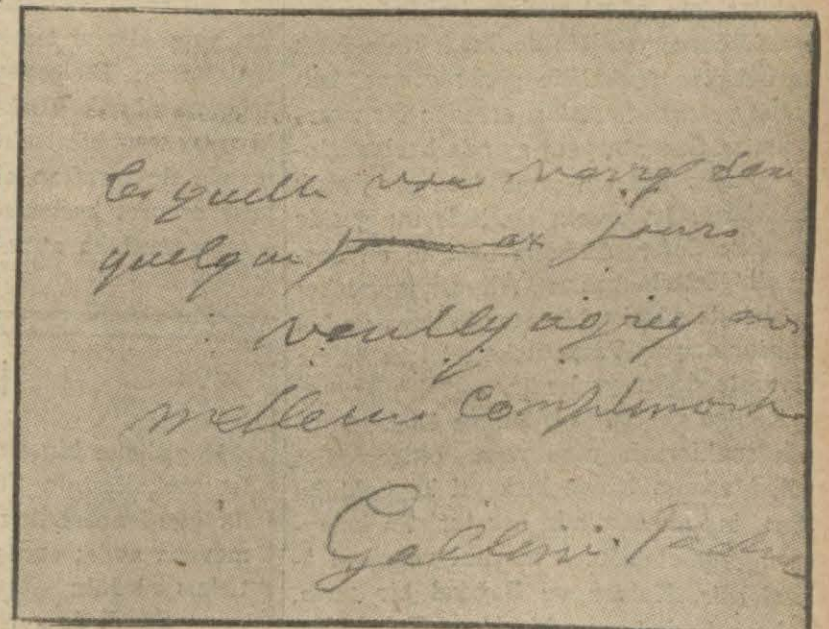 les quelle vous verrez dans
quelque jours
veuillez agréez mes
meilleurs Compliments
Galleni